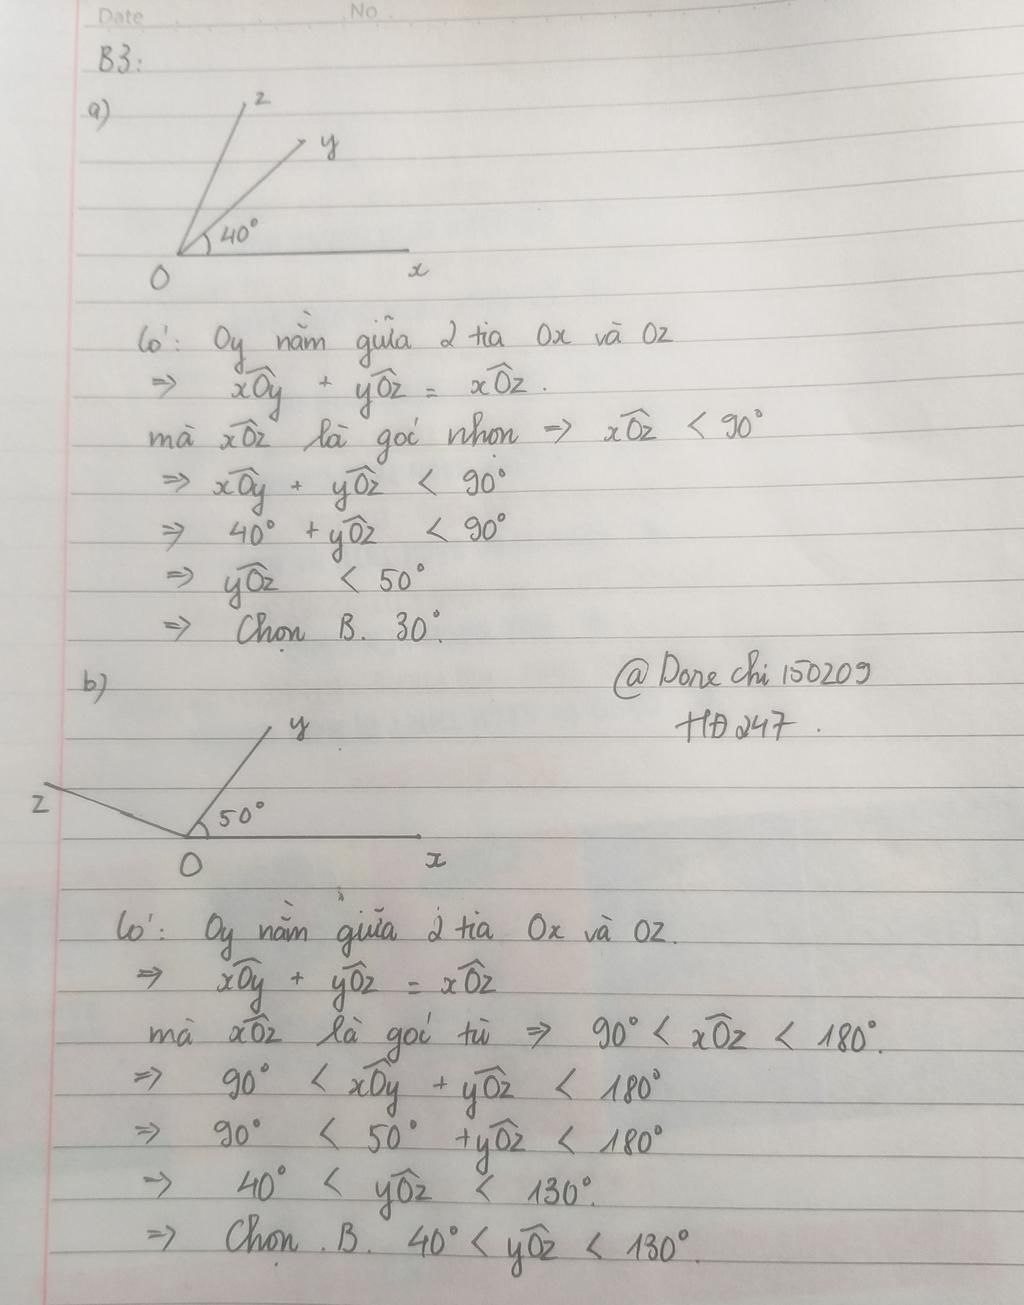 Date No
B3:
a)
z
y
40°
O
x
Có: Oy nằm giữa 2 tia Ox và Oz
=> xÔy + yÔz = xÔz.
mà xÔz là góc nhọn => xÔz < 90°
=> xÔy + yÔz < 90°
=> 40° + yÔz < 90°
=> yÔz < 50°
=> Chọn B. 30°.
@Dorechi150209
HĐ247.
b)
y
z
50°
O
x
Có: Oy nằm giữa 2 tia Ox và Oz.
=> xÔy + yÔz = xÔz
mà xÔz là góc tù => 90° < xÔz < 180°.
=> 90° < xÔy + yÔz < 180°
=> 90° < 50° + yÔz < 180°
=> 40° < yÔz < 130°.
=> Chọn . B. 40° < yÔz < 130°.